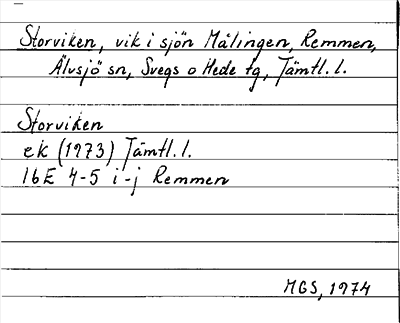 Storviken, vik i sjön Målingen, Remmen,
Älvsjö sn, Svegs o Hede tg, Jämtl. l.
Storviken
ek (1973) Jämtl. l.
16E 4-5 i-j Remmen
MGS, 1974